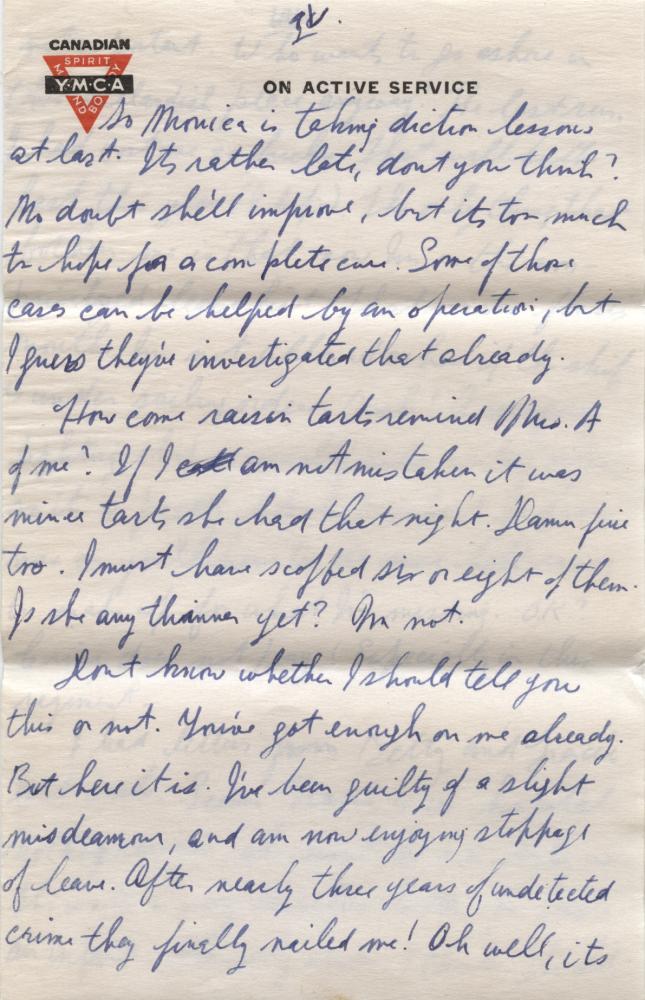 CANADIAN
SPIRIT
Y·M·C·A
MIND
BODY
ON ACTIVE SERVICE
So Monica is taking diction lessons
at last. Its rather late, dont you think?
No doubt she'll improve, but its too much
to hope for a complete cure. Some of those
cases can be helped by an operation, but
I guess they've investigated that already.
How come raisin tarts remind Mrs. A
of me? If I am not mistaken it was
mince tarts she had that night. Damn fine
too. I must have scoffed six or eight of them.
Is she any thinner yet? Im not.
Dont know whether I should tell you
this or not. You've got enough on me already.
But here it is. I've been guilty of a slight
misdeamour, and am now enjoying stoppage
of leave. After nearly three years of undetected
crime they finally nailed me! Oh well, its